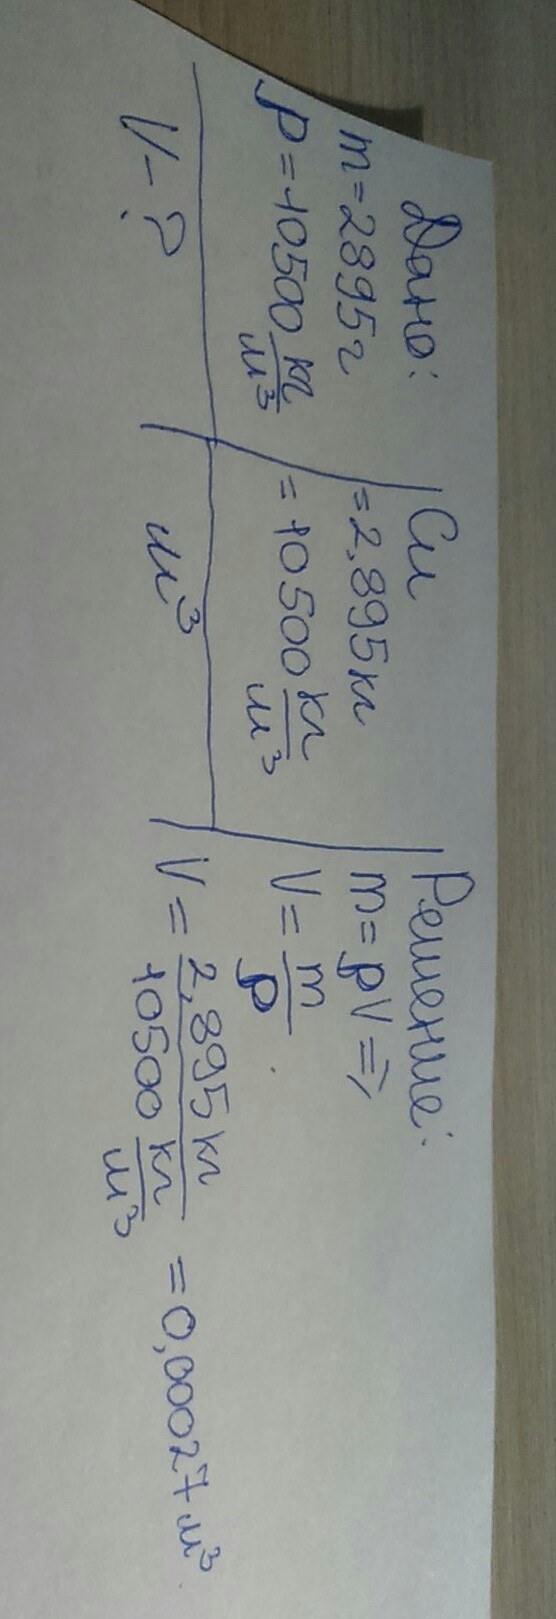 Дано:
m=2895г
ρ=10500 кг/м³
V-?
Си
=2,895кг
=10500 кг/м³
м³
Решение:
m=ρV⇒
V=m/ρ
V=2,895кг/10500 кг/м³ =0,00027м³.